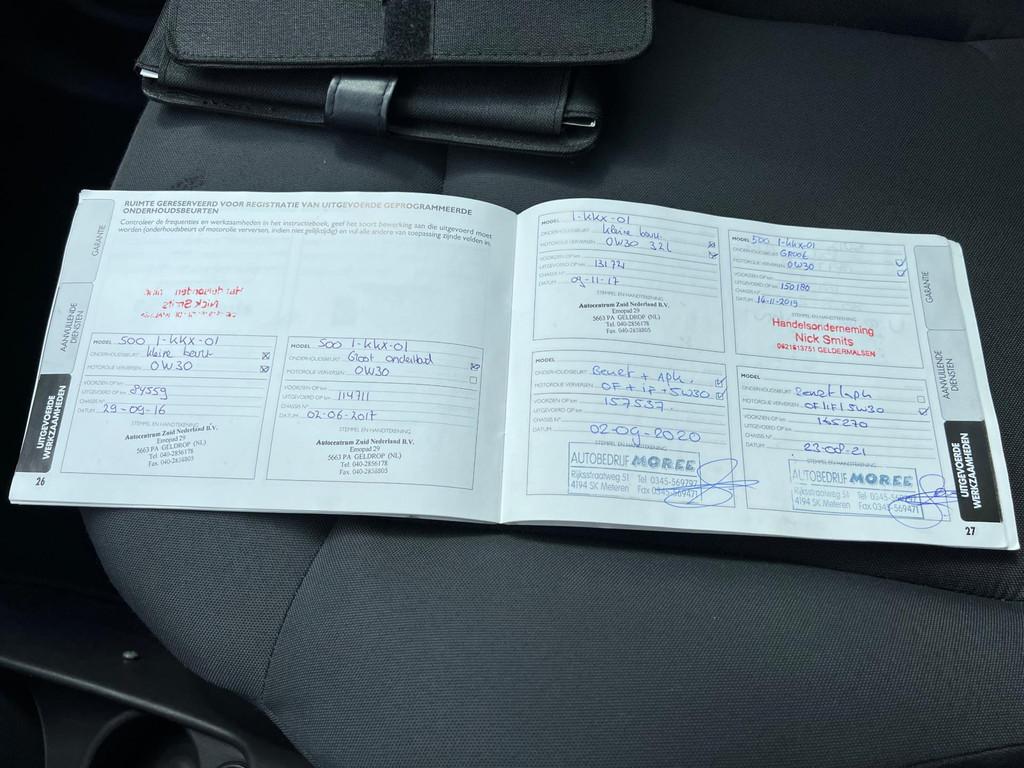 RUIMTE GERESERVEERD VOOR REGISTRATIE VAN UITGEVOERDE GEPROGRAMMEERDE
ONDERHOUDSBEURTEN
Controleer de frequenties en werkzaamheden in het instructieboek, geef het soort bewerking aan die uitgevoerd moet
worden (onderhoudsbeurt of motorolie verversen, indien niet gelijktijdig) en vul alle andere van toepassing zijnde velden in.
GARANTIE
AANVULLENDE
DIENSTEN
UITGEVOERDE
WERKZAAMHEDEN
Nick Smits
MODEL 500 1-KKX-01
ONDERHOUDSBEURT kleine beurt
MOTOROLIE VERVERSEN 0W30
VOORZIEN OP km
UITGEVOERD OP km 84559
CHASSIS N°
DATUM 29-09-16
STEMPEL EN HANDTEKENING
Autocentrum Zuid Nederland B.V.
Emopad 29
5663 PA GELDROP (NL)
Tel. 040-2856178
Fax. 040-2858805
MODEL 500 1-KKX-01
ONDERHOUDSBEURT Groot onderhoud
MOTOROLIE VERVERSEN 0W30
VOORZIEN OP km
UITGEVOERD OP km 114711
CHASSIS N°
DATUM 02-06-2017
STEMPEL EN HANDTEKENING
Autocentrum Zuid Nederland B.V.
Emopad 29
5663 PA GELDROP (NL)
Tel. 040-2856178
Fax. 040-2858805
26
MODEL 1-KKX-01
ONDERHOUDSBEURT kleine beurt
MOTOROLIE VERVERSEN 0W30 3.2L
VOORZIEN OP km
UITGEVOERD OP km 131721
CHASSIS N°
DATUM 09-11-17
STEMPEL EN HANDTEKENING
Autocentrum Zuid Nederland B.V.
Emopad 29
5663 PA GELDROP (NL)
Tel. 040-2856178
Fax. 040-2858805
MODEL 500 1-KKX-01
ONDERHOUDSBEURT GROOT
MOTOROLIE VERVERSEN 0W30
VOORZIEN OP km
UITGEVOERD OP km 150180
CHASSIS N°
DATUM 16-11-2019
STEMPEL EN HANDTEKENING
Handelsonderneming
Nick Smits
0621813751 GELDERMALSEN
MODEL
ONDERHOUDSBEURT Beurt + Apk.
MOTOROLIE VERVERSEN OF + IF + 5W30
VOORZIEN OP km
UITGEVOERD OP km 157537
CHASSIS N°
DATUM 02-09-2020
STEMPEL EN HANDTEKENING
AUTOBEDRIJF MOREE
Rijksstraatweg 51 Tel 0345-569797
4194 SK Meteren Fax 0345-569471
MODEL
ONDERHOUDSBEURT Beurt apk
MOTOROLIE VERVERSEN OF IF 5W30
VOORZIEN OP km
UITGEVOERD OP km
CHASSIS N°
DATUM 23-08-21
STEMPEL EN HANDTEKENING
AUTOBEDRIJF MOREE
Rijksstraatweg 51 Tel
4194 SK Meteren Fax 0345-569471
GARANTIE
AANVULLENDE
DIENSTEN
UITGEVOERDE
WERKZAAMHEDEN
27